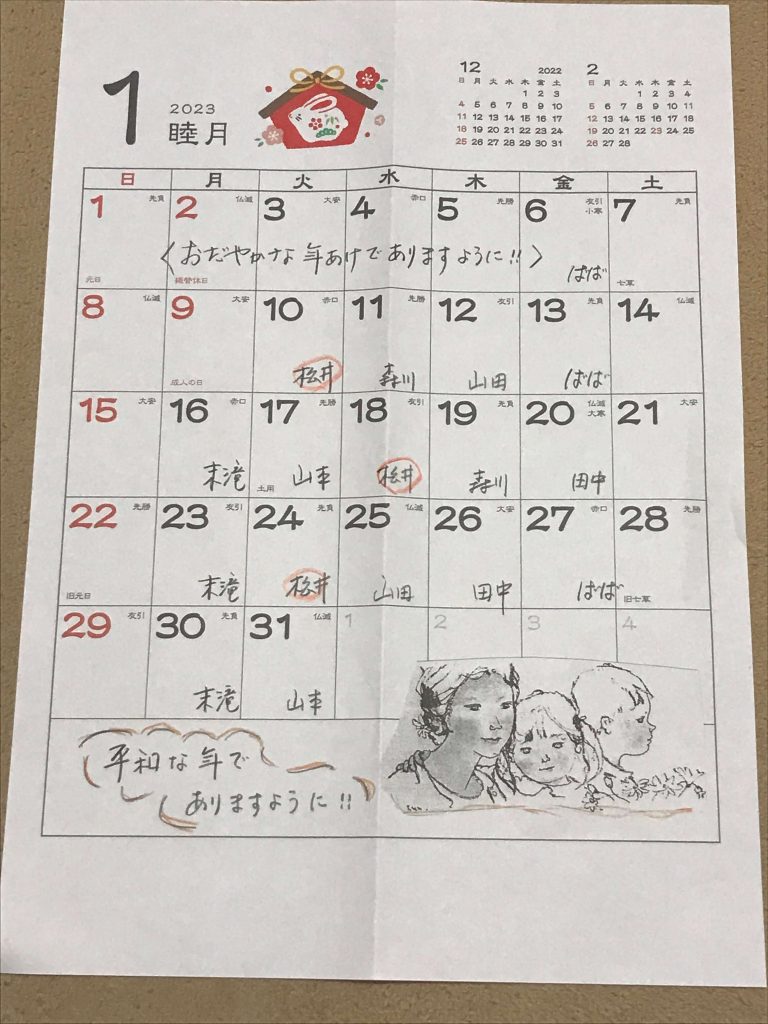 1
2023
睦月
12 2022
日 月 火 水 木 金 土
1 2 3
4 5 6 7 8 9 10
11 12 13 14 15 16 17
18 19 20 21 22 23 24
25 26 27 28 29 30 31
2
日 月 火 水 木 金 土
1 2 3 4
5 6 7 8 9 10 11
12 13 14 15 16 17 18
19 20 21 22 23 24 25
26 27 28
日 月 火 水 木 金 土
1 先負 2 仏滅 3 大安 4 赤口 5 先勝 6 友引 小寒 7 先負
〈おだやかな年あけでありますように!!〉
元日 振替休日 ばば 七草
8 仏滅 9 大安 10 赤口 11 先勝 12 友引 13 先負 14 仏滅
成人の日 松井 森川 山田 ばば
15 大安 16 赤口 17 先勝 18 友引 19 先負 20 仏滅 大寒 21 大安
末滝 土用 山本 松井 森川 田中
22 先勝 23 友引 24 先負 25 仏滅 26 大安 27 赤口 28 先勝
旧元日 末滝 松井 山田 田中 ばば 旧七草
29 友引 30 先負 31 仏滅 1 2 3 4
末滝 山本
平和な年で
ありますように!!